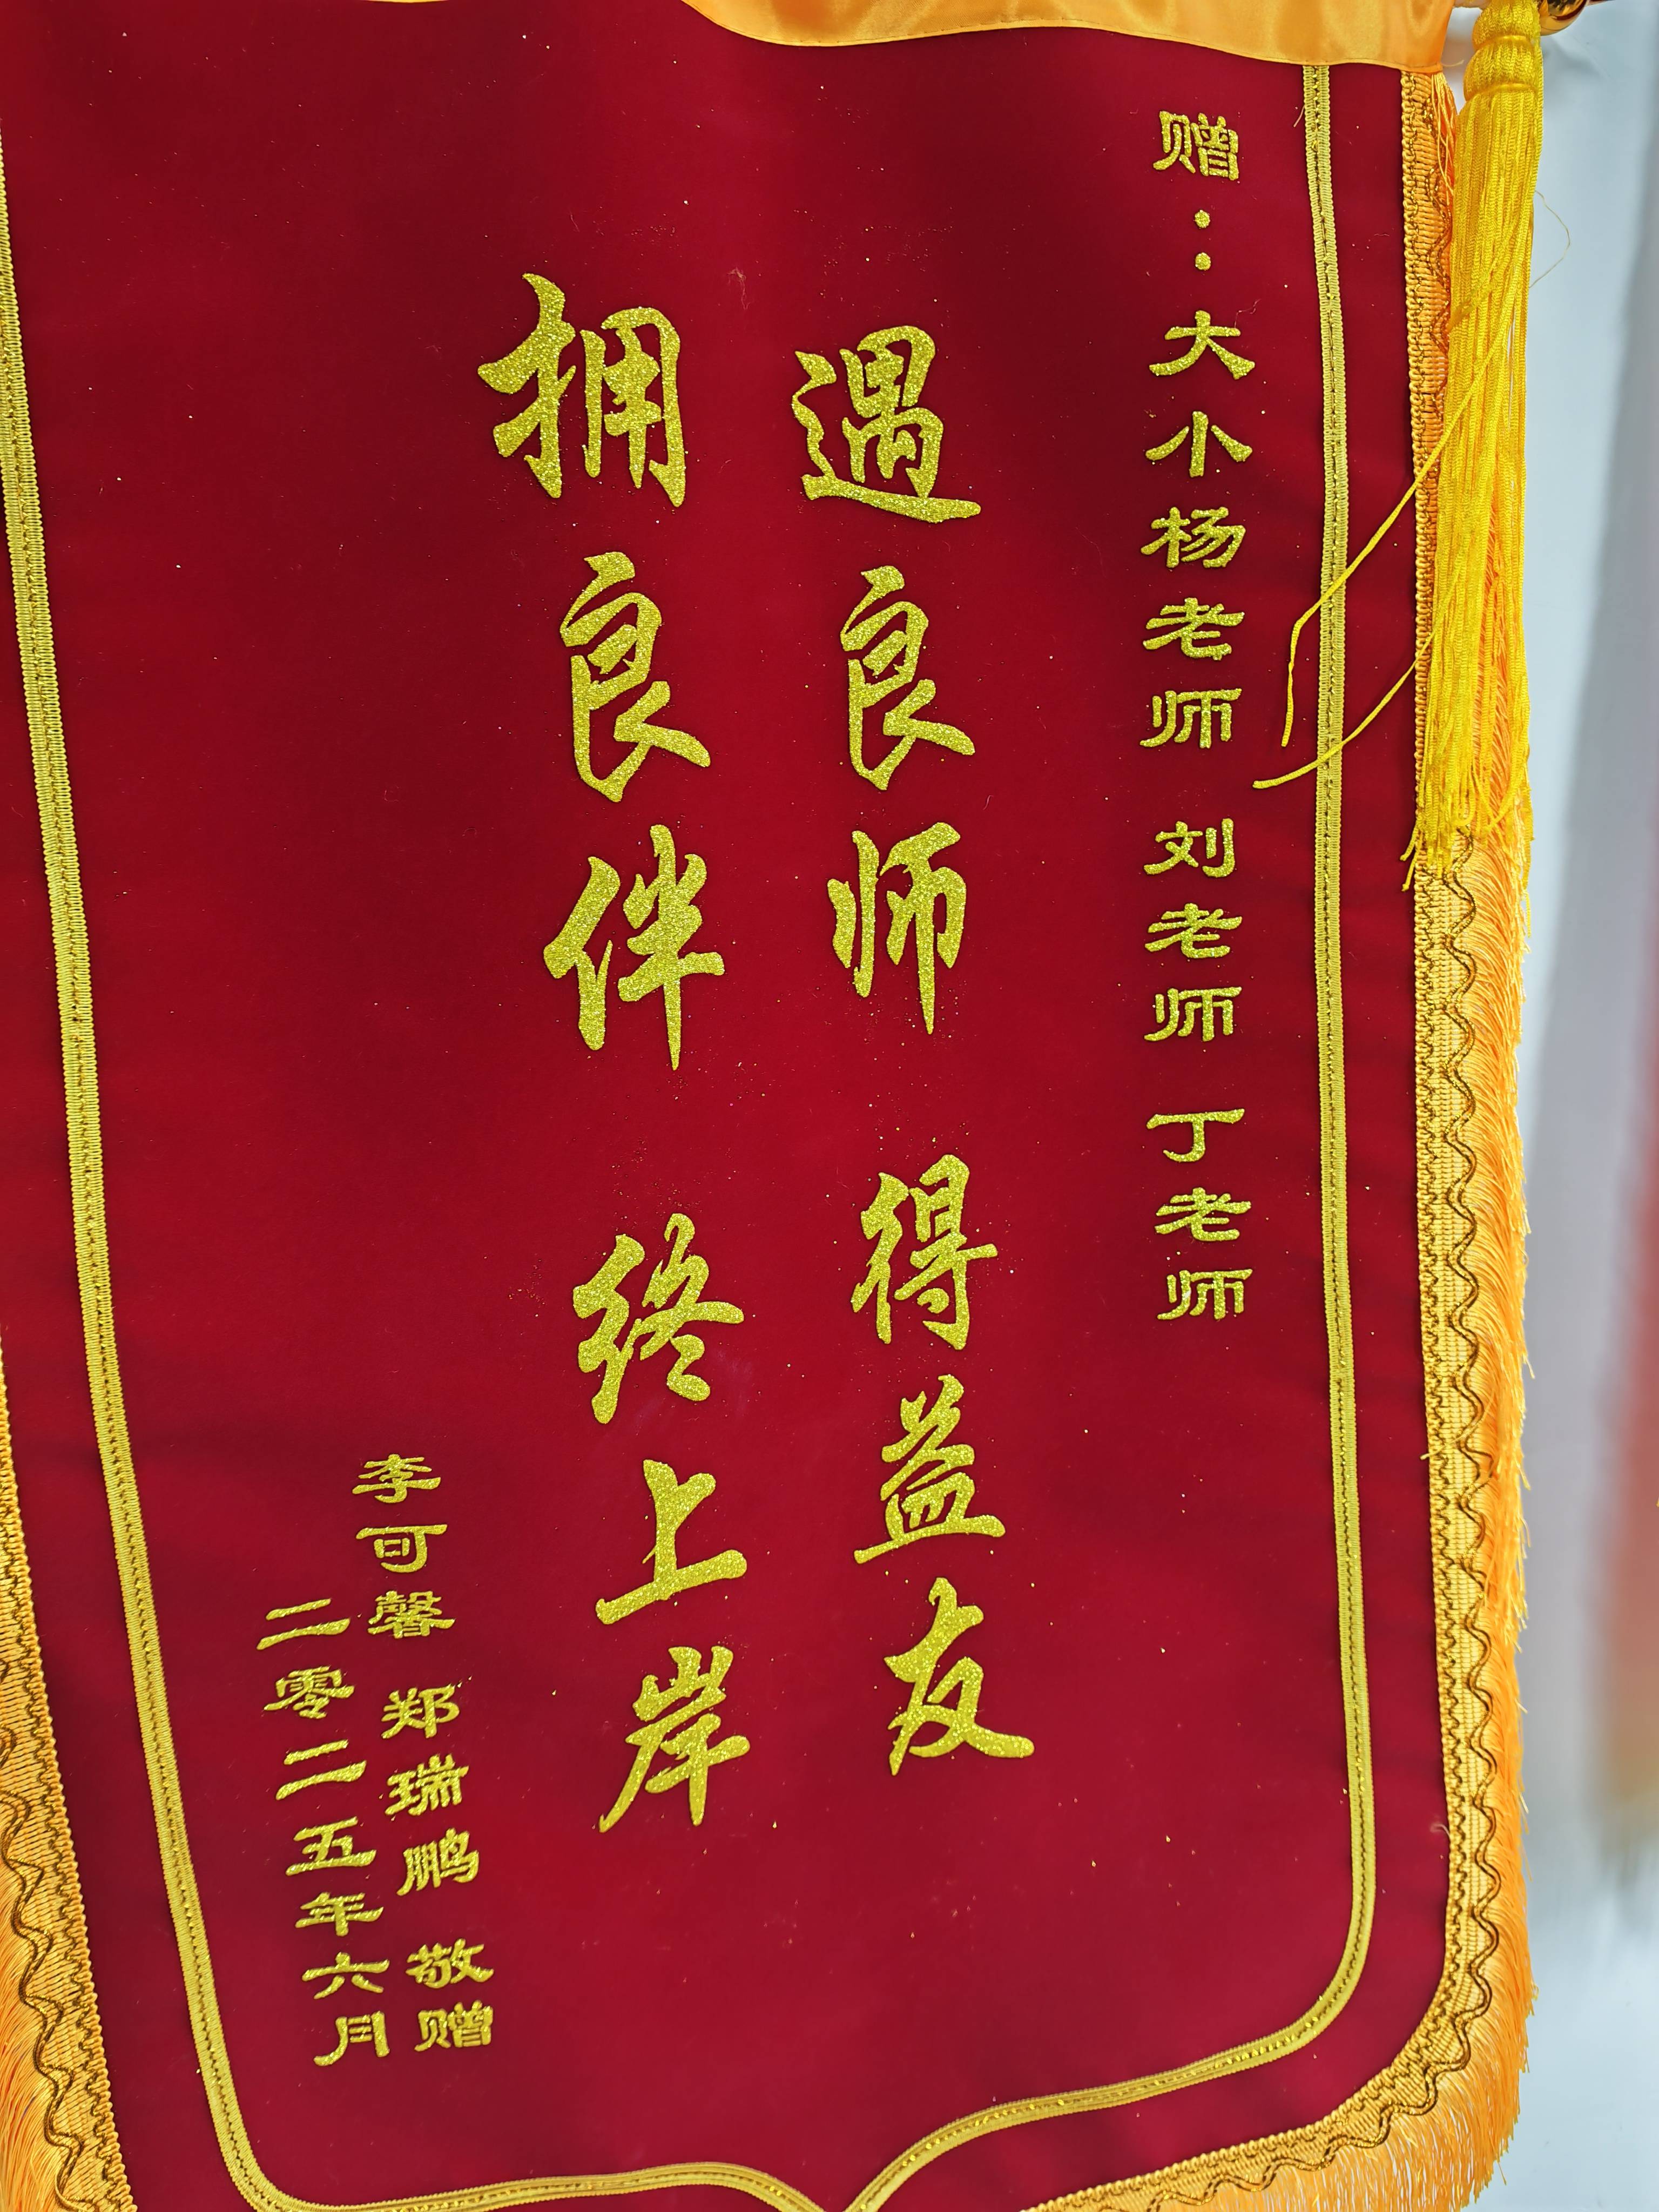 赠：大小杨老师 刘老师 丁老师
遇良师 得益友
拥良伴 终上岸
李可馨 郑瑞鹏 敬赠
二零二五年六月